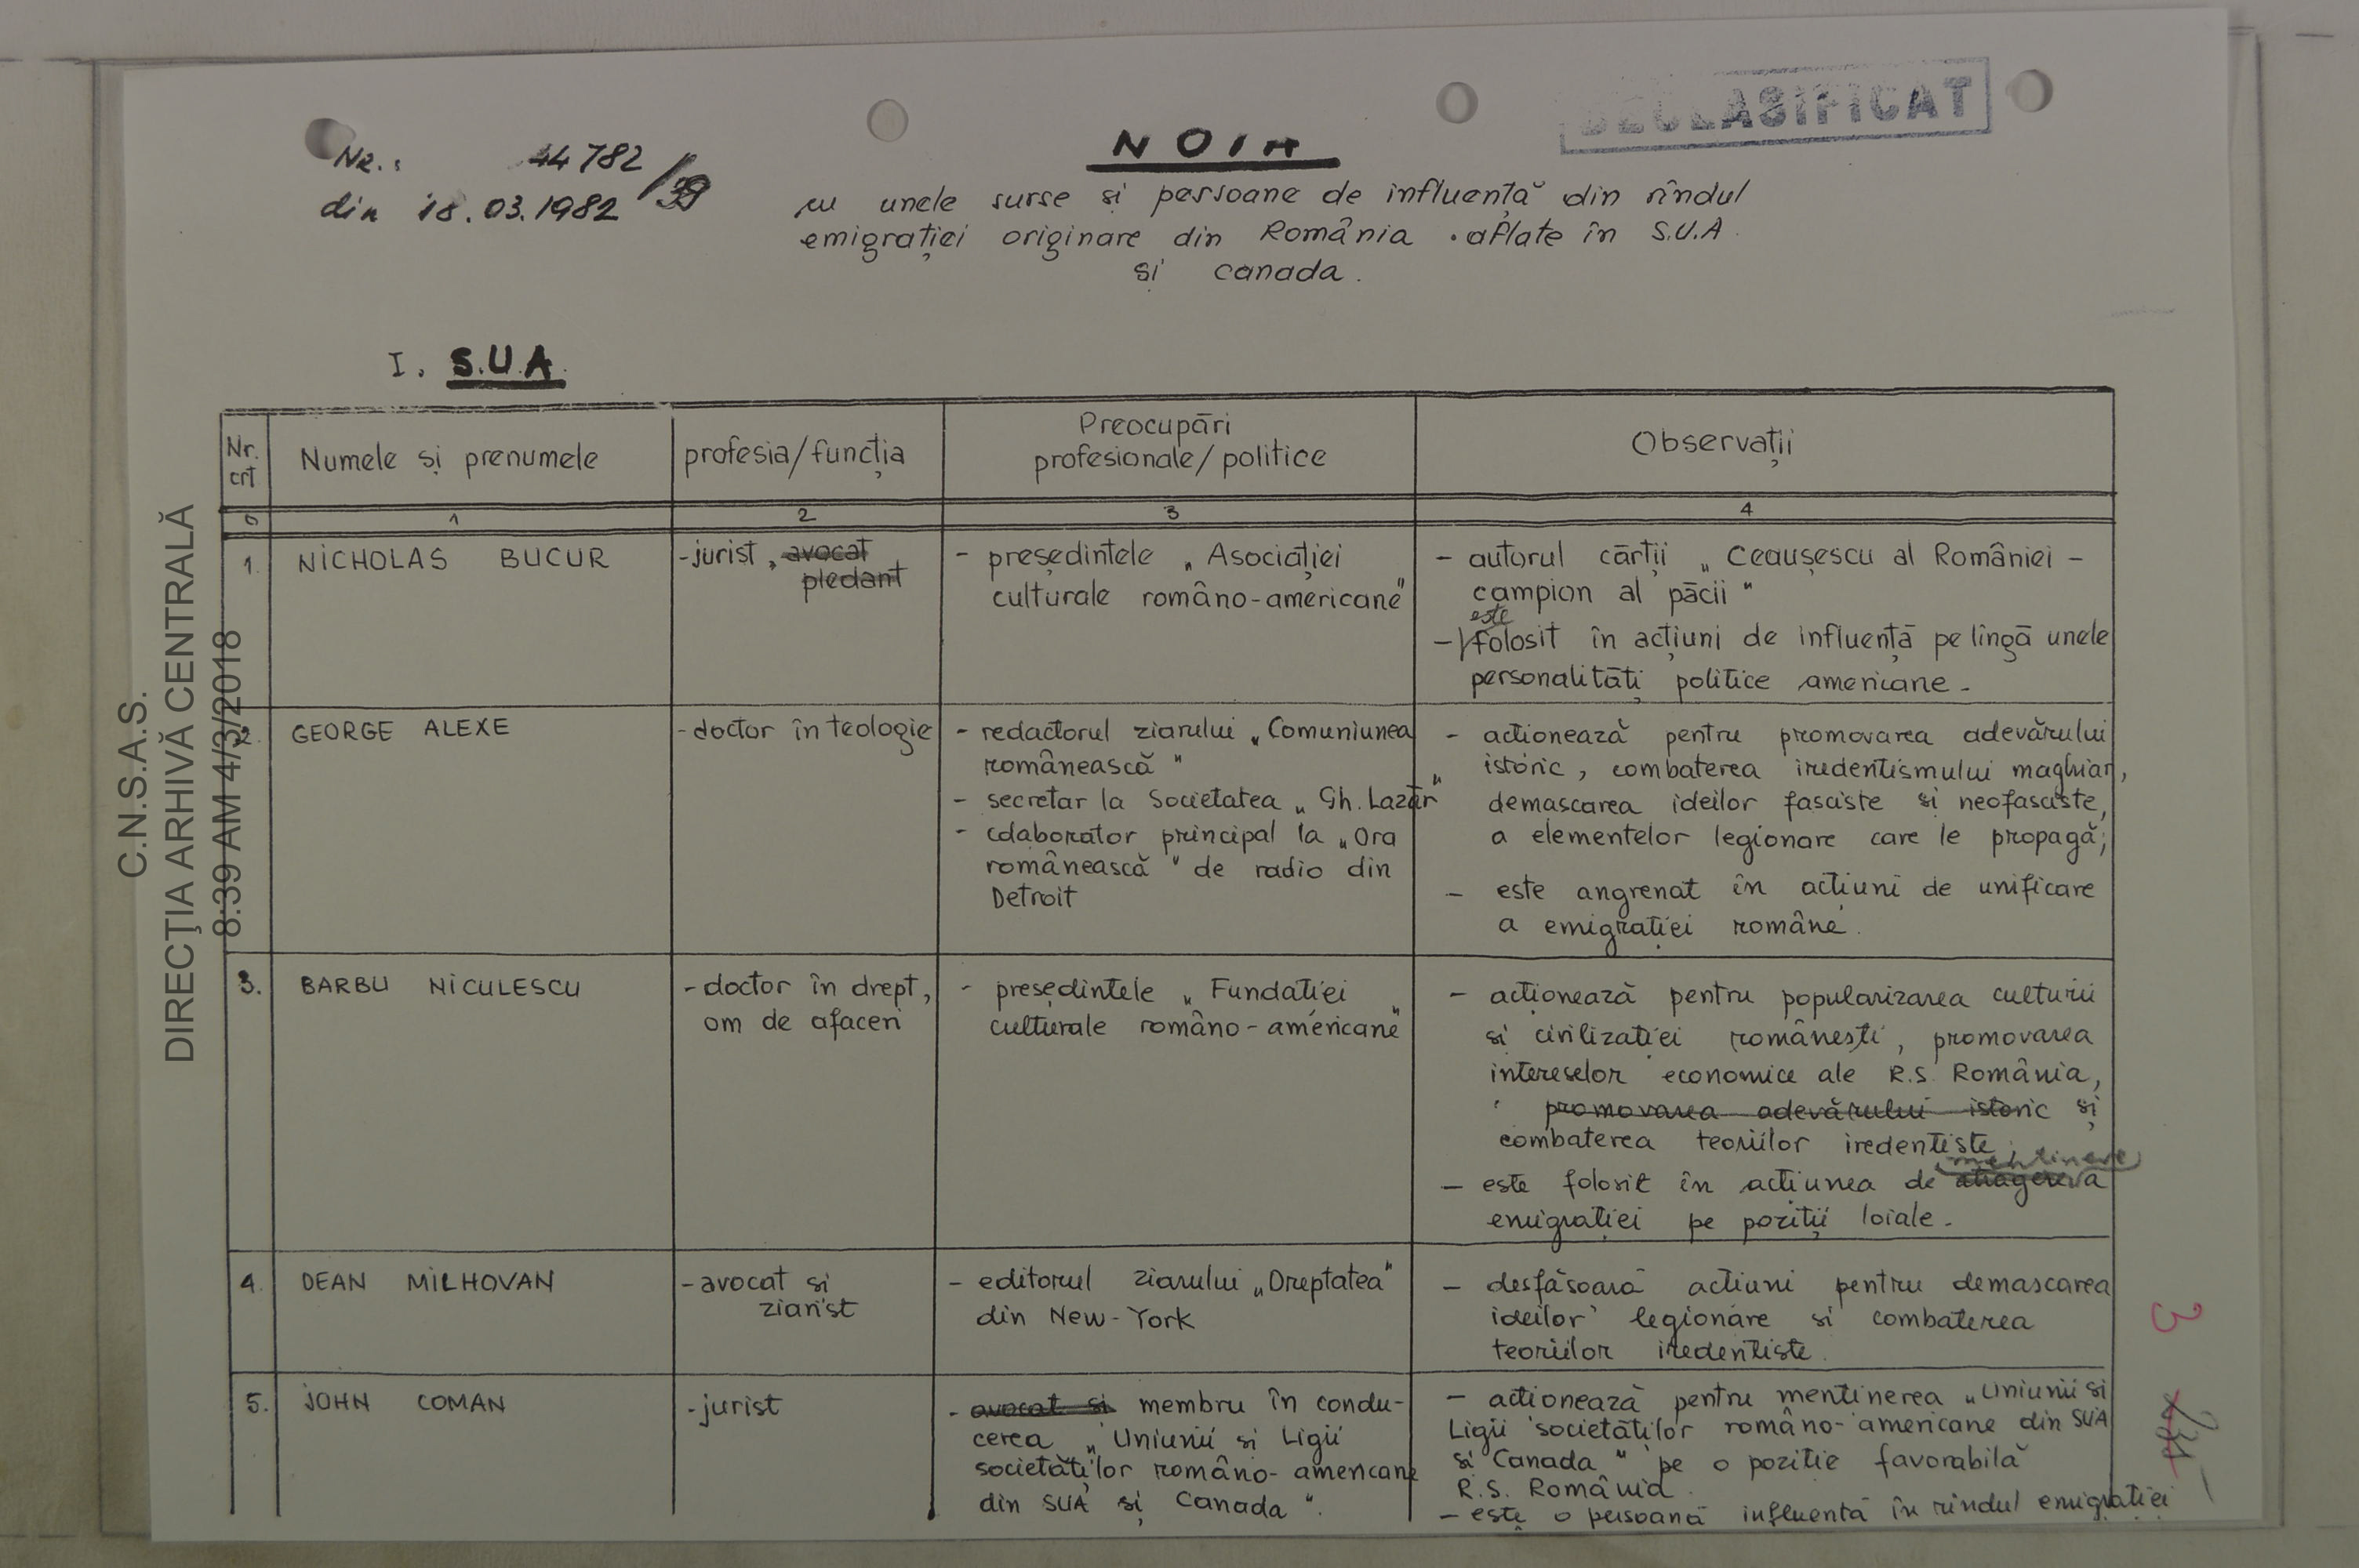 DECLASIFICAT
Nr.: 44782/39
din 18.03.1982
NOTA
cu unele surse și persoane de influență din rîndul
emigrației originare din România aflate în S.U.A.
și canada.
I. S.U.A.
Nr. crt
Numele și prenumele
profesia/funcția
Preocupări
profesionale/politice
Observații
0 1 2 3 4
1. NICHOLAS BUCUR
- jurist, avocat
pledant
- președintele „Asociației
culturale româno-americane"
- autorul cărții „Ceaușescu al României -
campion al păcii"
este
- folosit în acțiuni de influență pe lîngă unele
personalități politice americane.
2. GEORGE ALEXE
- doctor în teologie
- redactorul ziarului „Comuniunea
românească"
- secretar la Societatea „Gh. Lazăr"
- colaborator principal la „Ora
românească" de radio din
Detroit
- acționează pentru promovarea adevărului
istoric, combaterea iredentismului maghiar,
demascarea ideilor fasciste și neofasciste,
a elementelor legionare care le propagă;
- este angrenat în acțiuni de unificare
a emigrației române.
3. BARBU NICULESCU
- doctor în drept,
om de afaceri
- președintele „Fundației
culturale româno-americane"
- acționează pentru popularizarea culturii
și civilizației românești, promovarea
intereselor economice ale R.S. România,
promovarea adevărului istoric și
combaterea teoriilor iredentiste;
menținere
- este folosit în acțiunea de atragere a
emigrației pe poziții loiale.
4. DEAN MILHOVAN
- avocat și
ziarist
- editorul ziarului „Dreptatea"
din New-York
- desfășoară acțiuni pentru demascarea
ideilor legionare și combaterea
teoriilor iredentiste.
5. JOHN COMAN
- jurist
- avocat și membru în condu-
cerea „Uniunii și Ligii
societăților româno-americane
din SUA și Canada".
- acționează pentru menținerea „Uniunii și
Ligii societăților româno-americane din SUA
și Canada" pe o poziție favorabilă
R.S. România.
- este o persoană influentă în rîndul emigrației
3
C.N.S.A.S.
DIRECŢIA ARHIVĂ CENTRALĂ
8:39 AM 4/3/2018